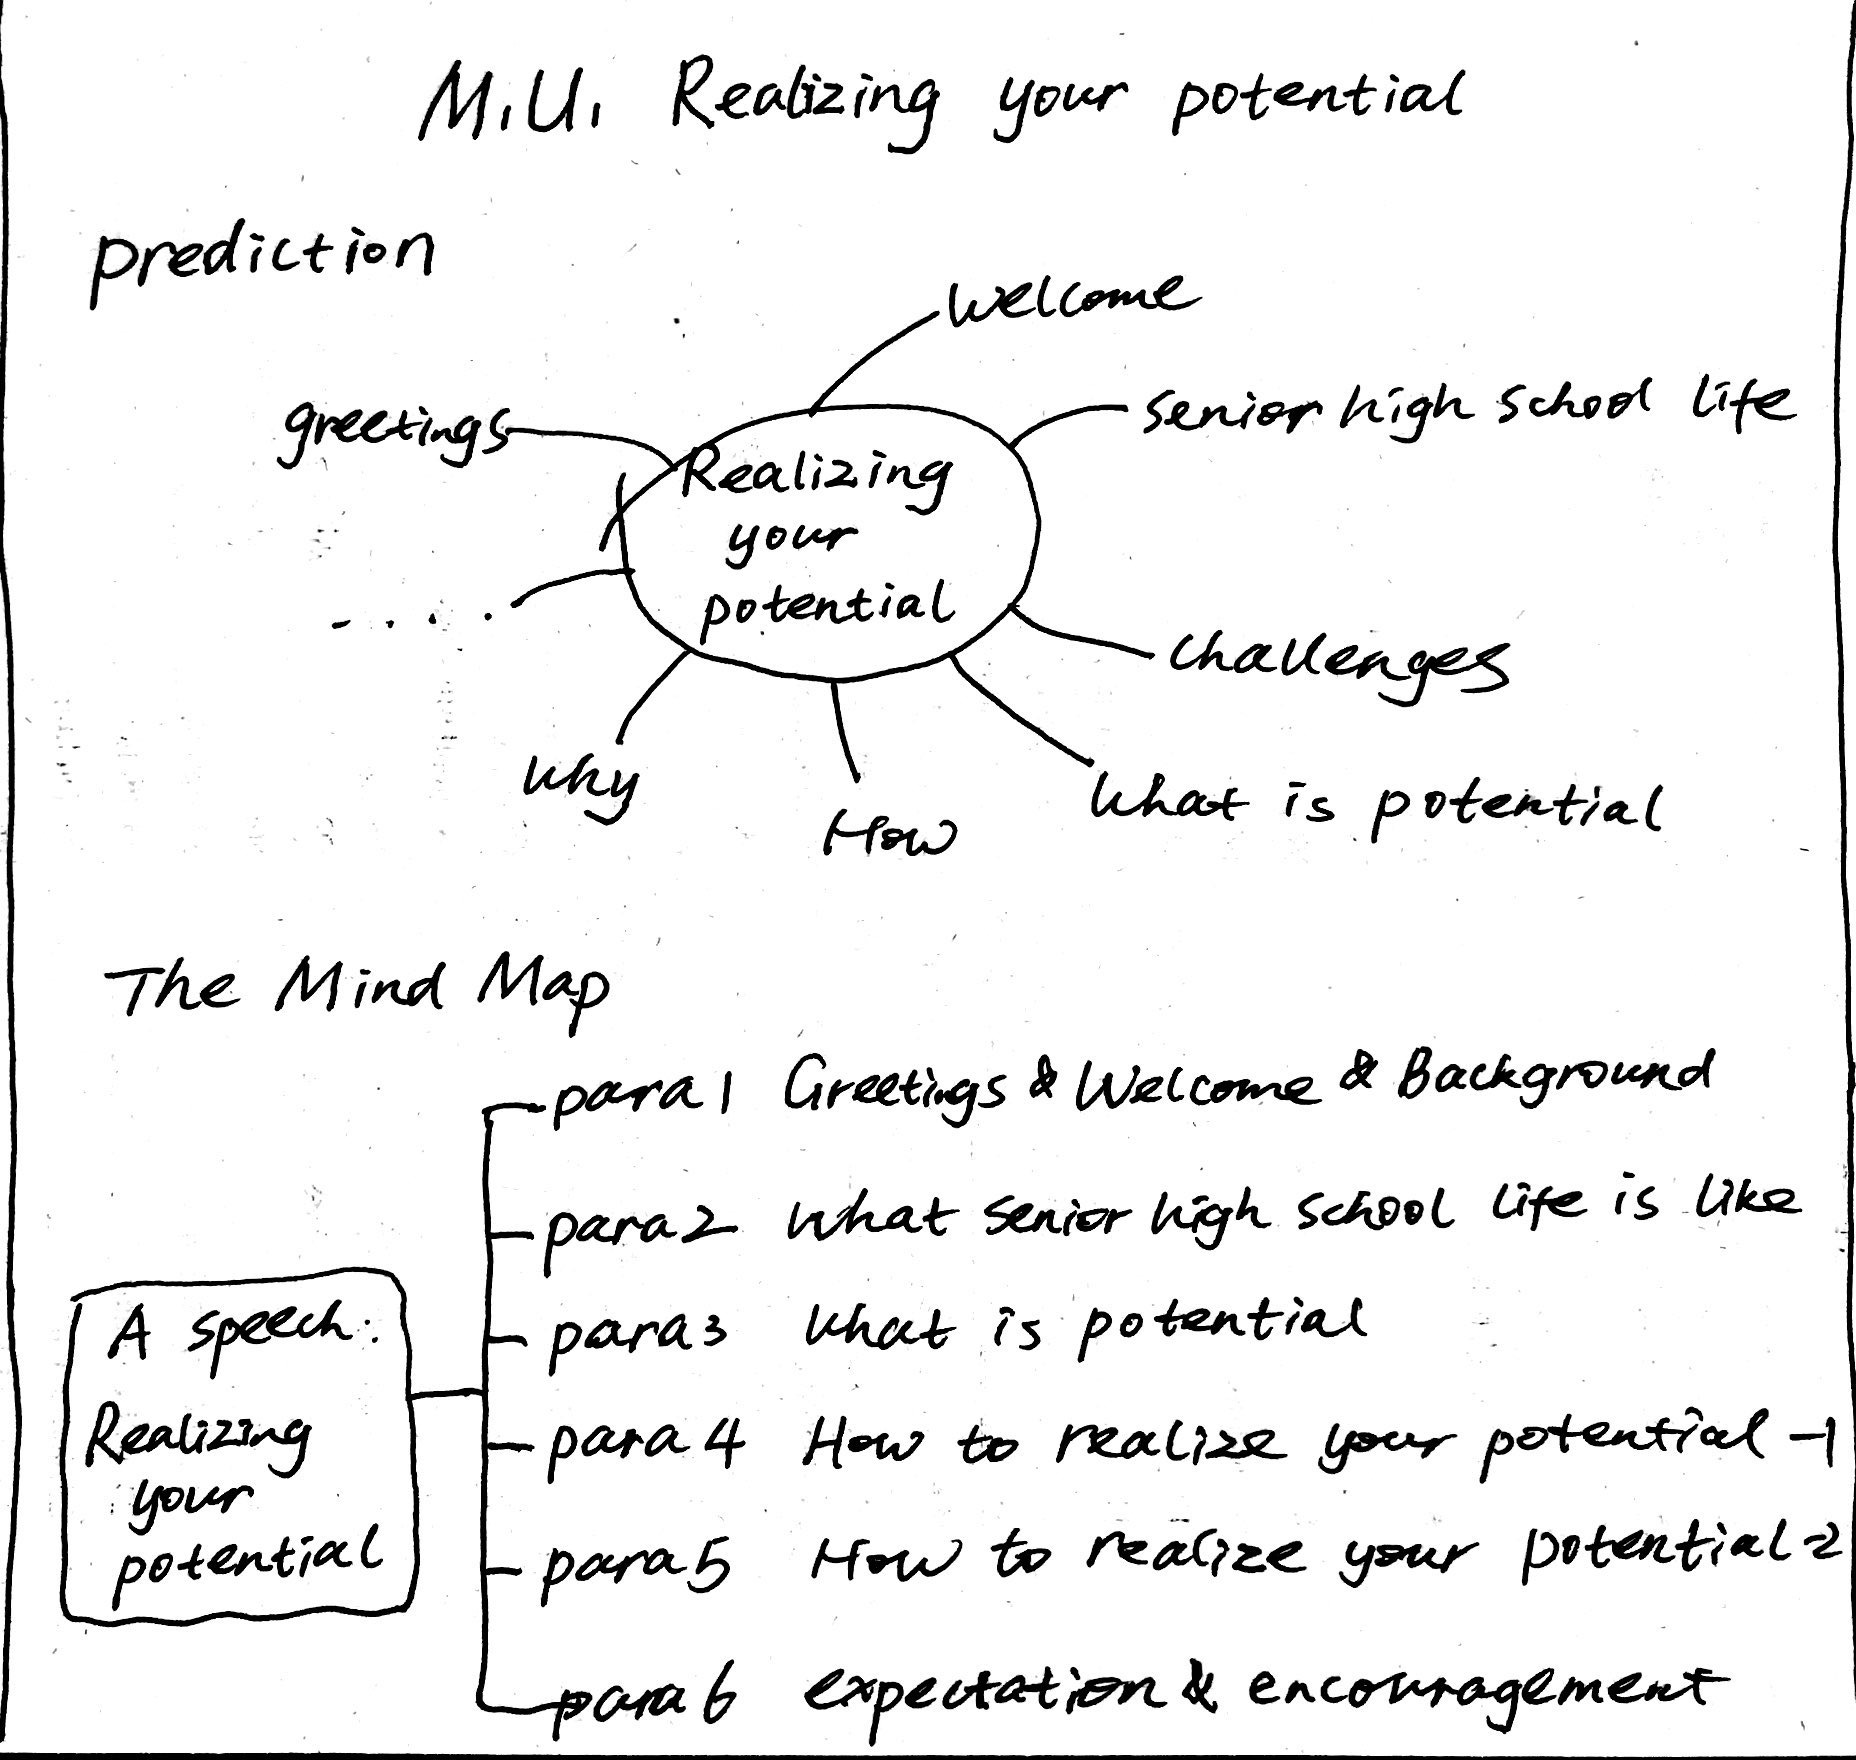 M1U1 Realizing your potential
prediction
Welcome
greetings
senior high school life
Realizing
your
potential
.....
challenges
why
How
What is potential
The Mind Map
para1 Greetings & Welcome & Background
para2 What senior high school life is like
para3 What is potential
para4 How to realize your potential -1
para5 How to realize your potential -2
para6 expectation & encouragement
A speech:
Realizing
your
potential